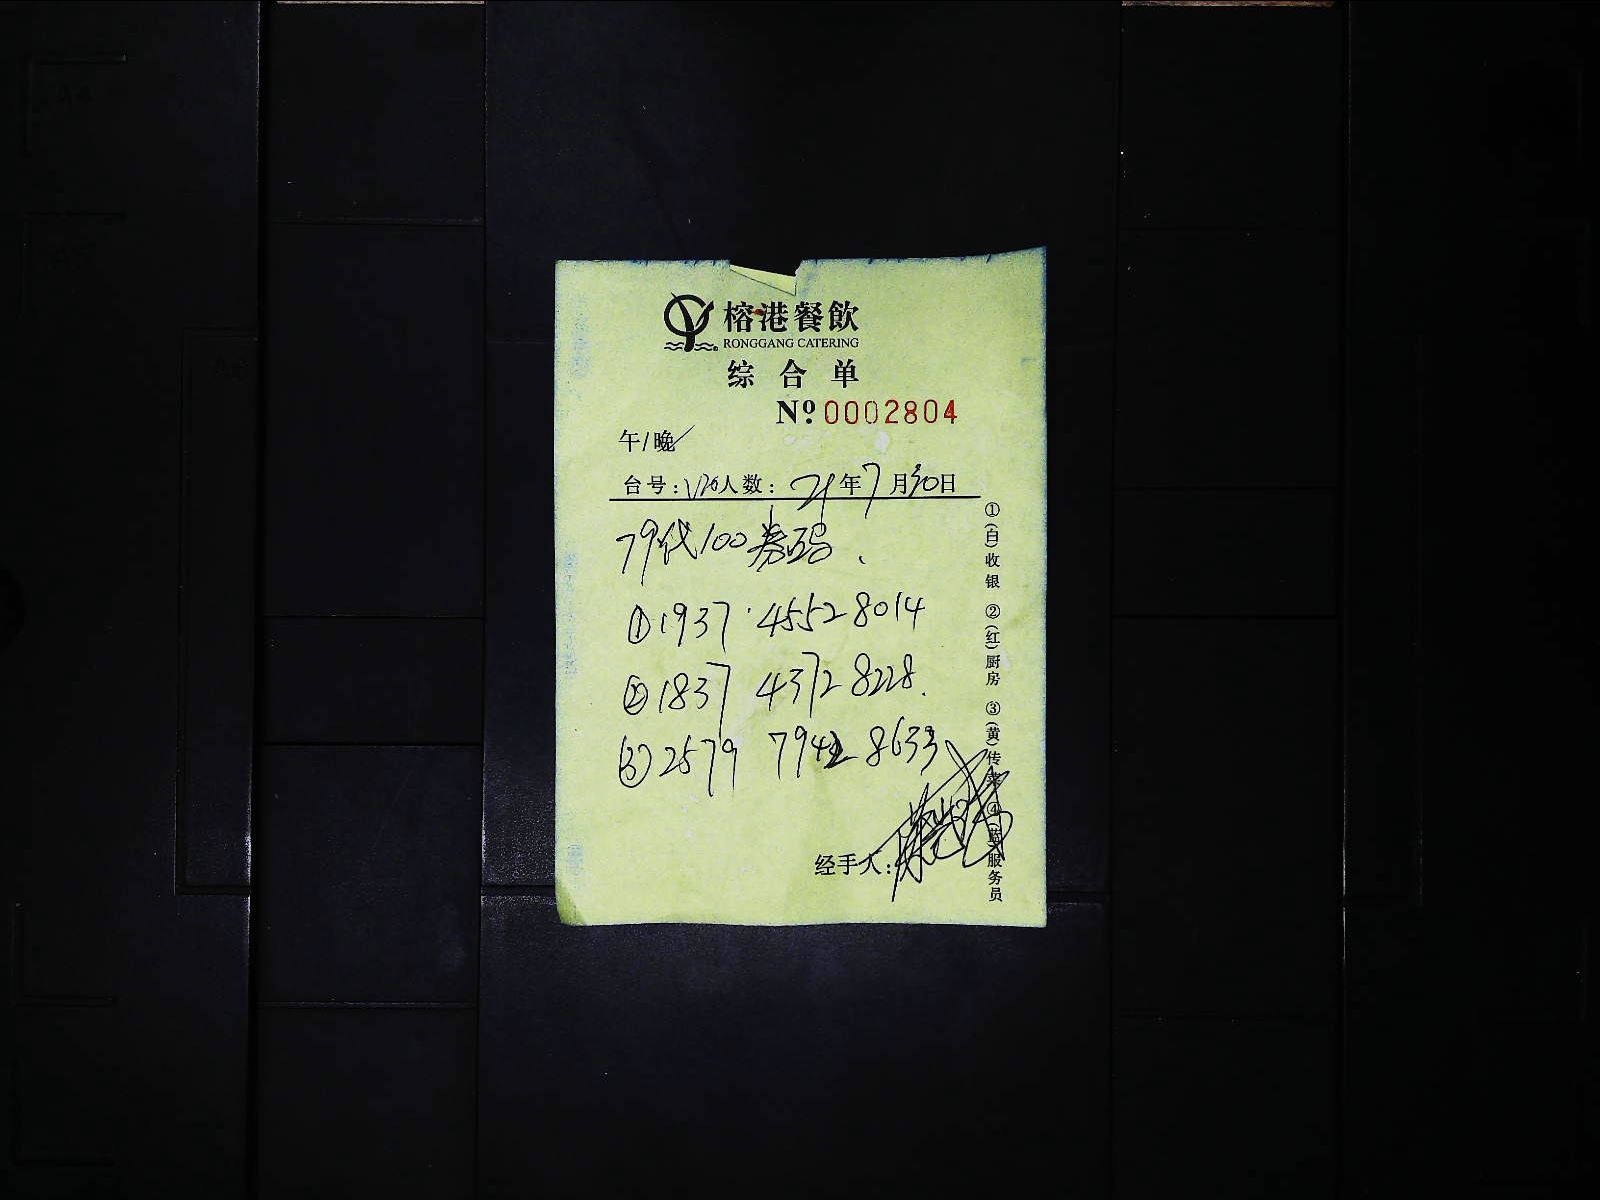 榕港餐飲
RONGGANG CATERING
综合单
Nº 0002804
午/晚
台号:V26人数: 21年7月30日
79代100券码、
①1937 45528014
②1837 43728228.
③2579 79428633
经手人:
①(白)收银 ②(红)厨房 ③(黄)传菜 ④(蓝)服务员